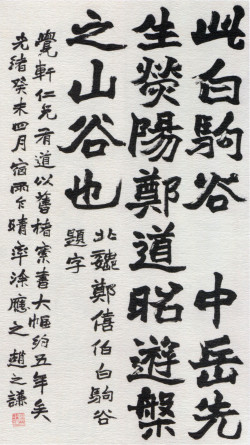 此白駒谷 中岳先
生熒陽鄭道昭遊槃
之山谷也
北魏鄭僖伯白駒谷
題字
覺軒仁兄有道以舊楮索書大幅約五年矣
光緒癸未四月宿雨乍晴率塗應之 趙之謙